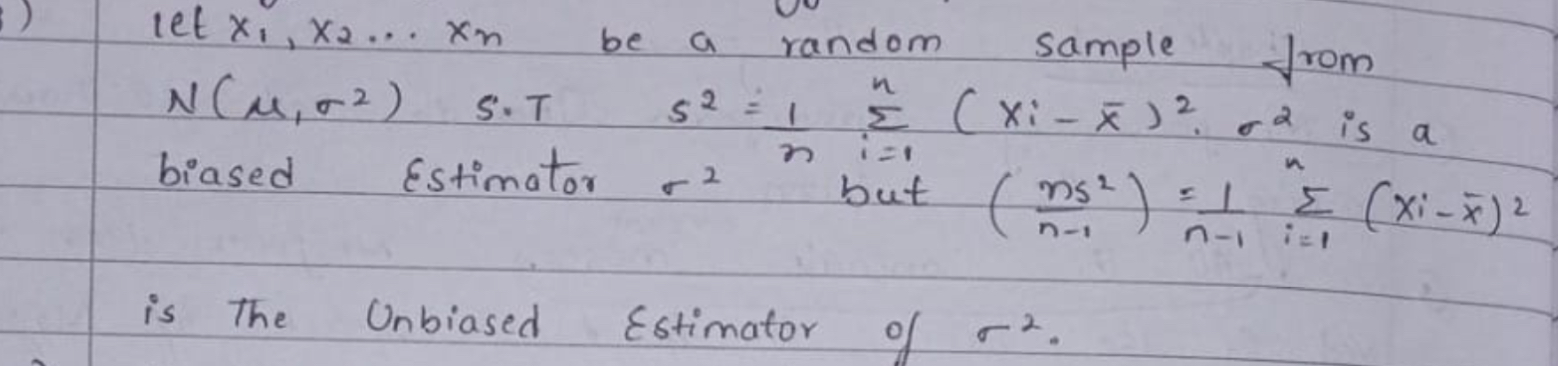 let x₁, x₂... xₙ be a random sample from
N(μ, σ²) S.T s² = 1/n Σⁿᵢ₌₁ (xi - x̄)². σ² is a
biased Estimator σ² but (ns²/n-1) = 1/n-1 Σⁿᵢ₌₁ (xi - x̄)²
is The Unbiased Estimator of σ².